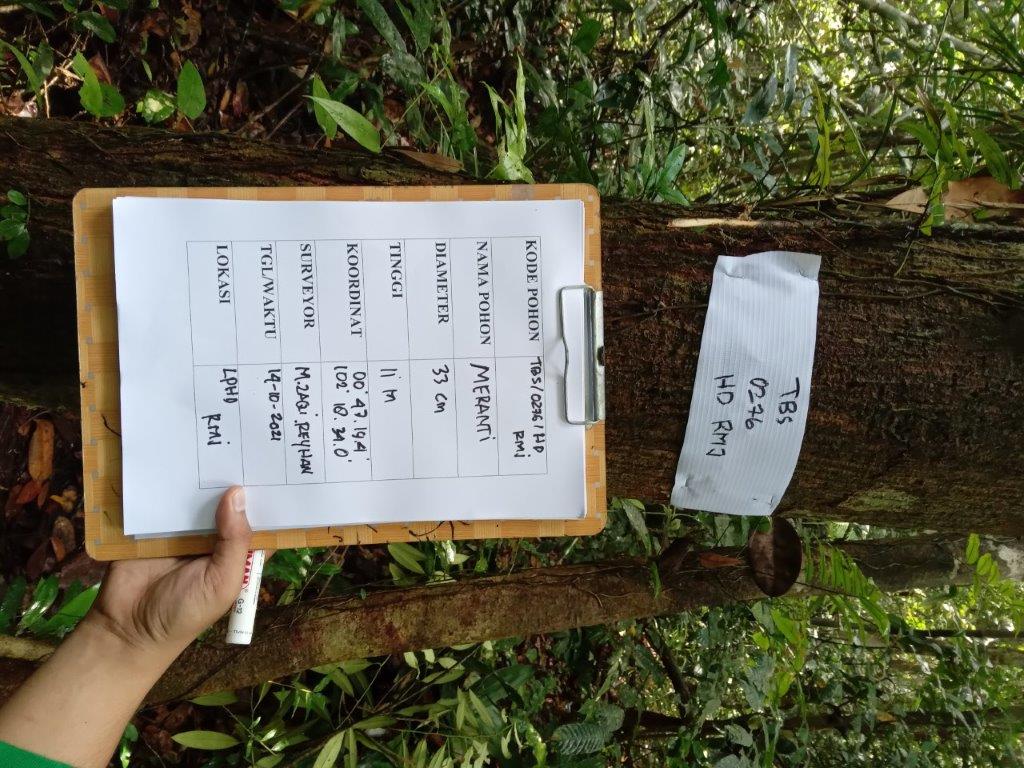 KODE POHON TBS/0276/HD
RMJ
NAMA POHON MERANTI
DIAMETER 33 cm
TINGGI 11 m
KOORDINAT 00° 47' 19.4'
102° 10' 31.0'
SURVEYOR M. ZAQI REYHAN
TGL/WAKTU 14-10-2021
LOKASI LPHD
RMJ
TBS
0276
HD RMJ
G-12